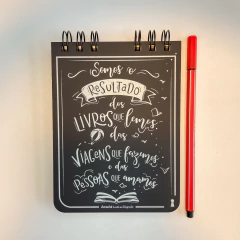 Somos o
RESULTADO
dos
LIVROS que lemos,
das
VIAGENS que fazemos
e das
PESSOAS que amamos